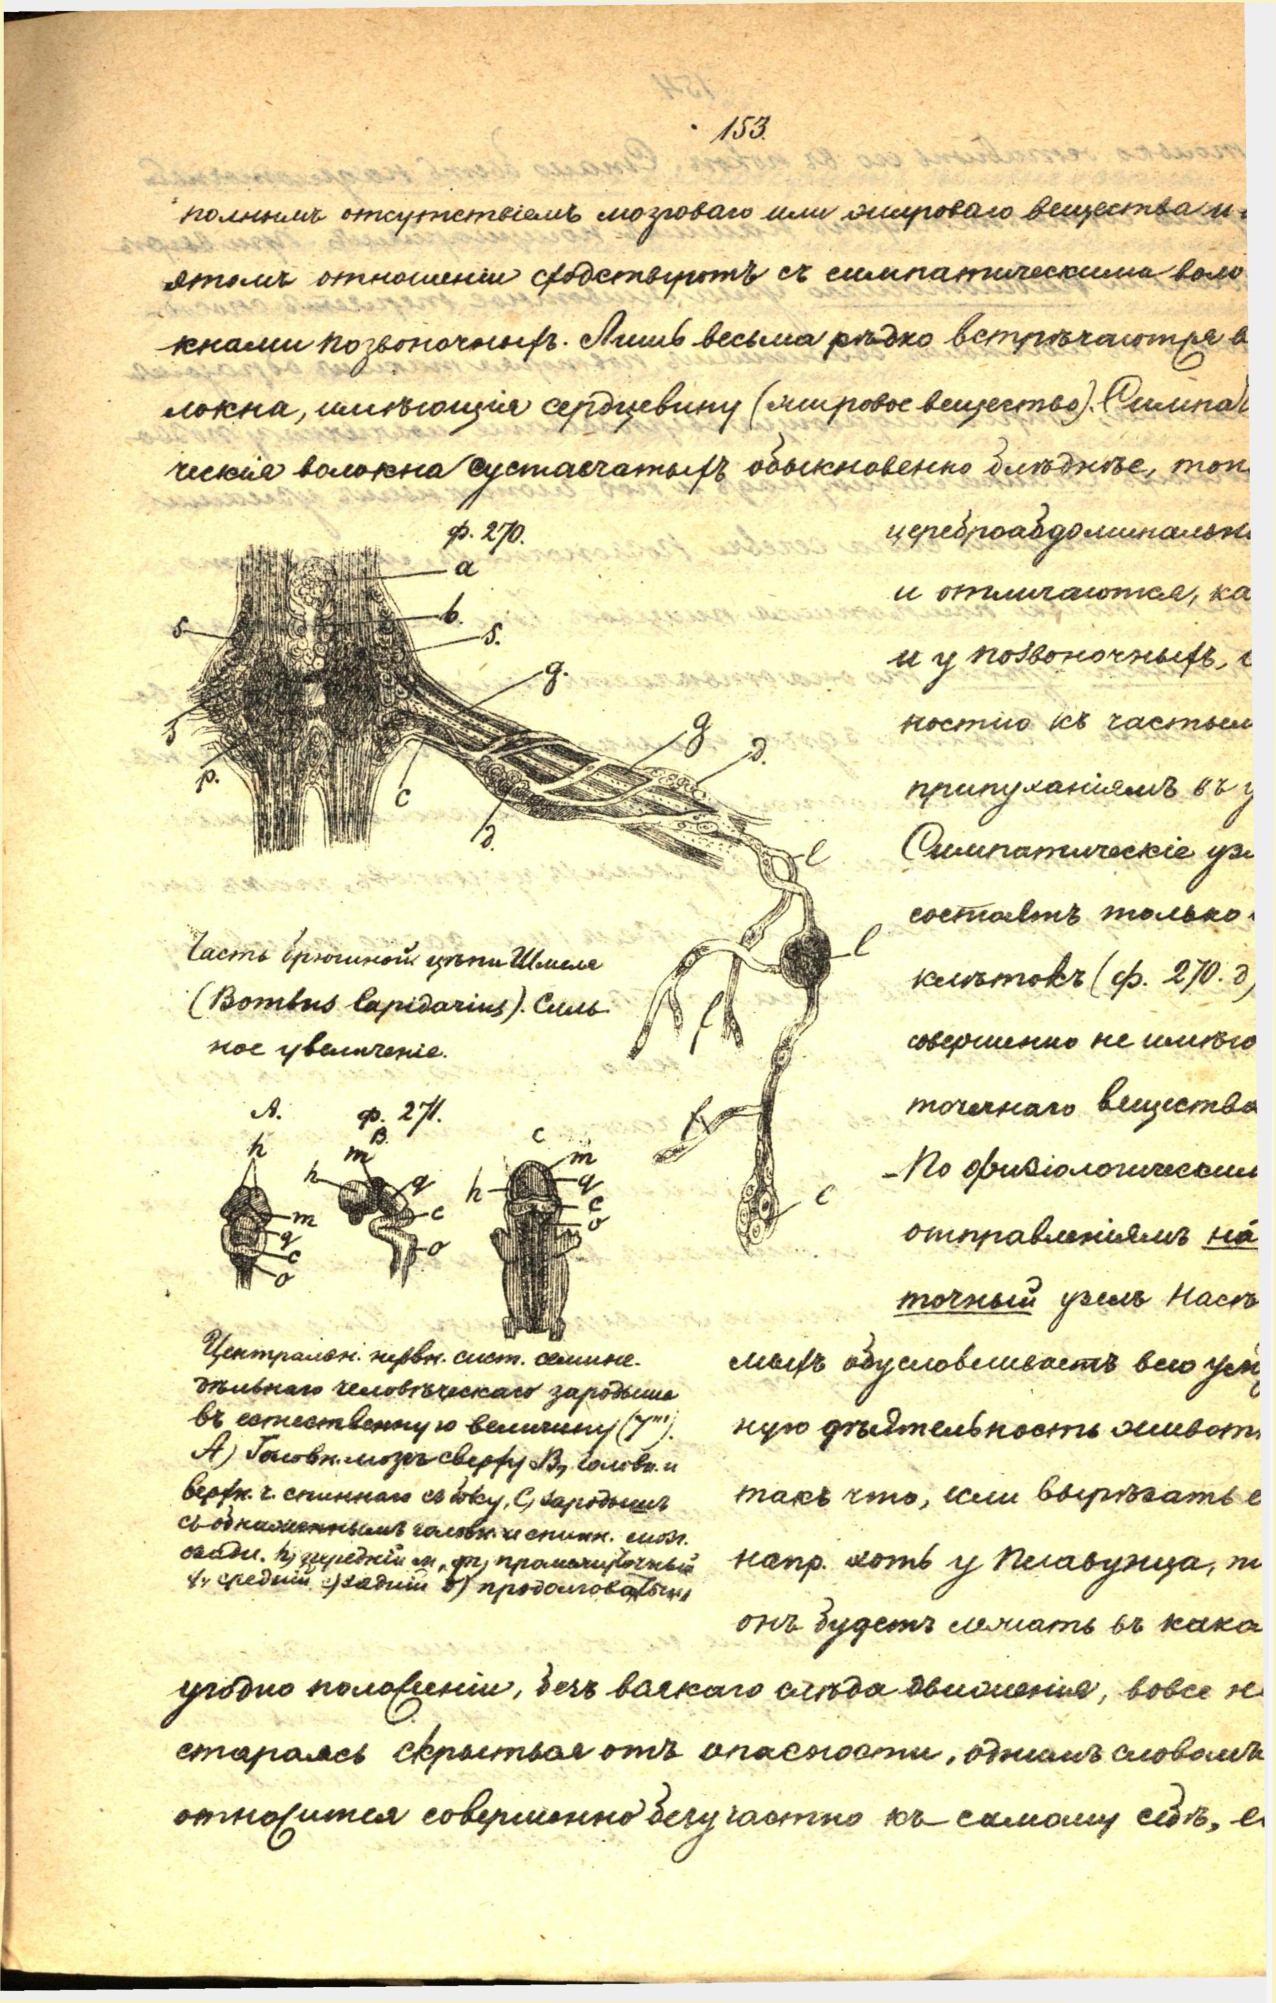 153.
полнымъ отсутствіемъ мозговаго или жироваго вещества и
этомъ отношеніи сходствуютъ съ симпатическими воло
кнами позвоночныхъ. Лишь весьма рѣдко встрѣчаются в
локна, имѣющія сердцевину (жировое вещество). Симпа
ческія волокна суставчатыхъ обыкновенно блѣднѣе, тон
ф. 270.
a
b.
s.
s.
g.
g
d.
s
p.
c
d.
l
l
f
f
c
цереброабдоминальн
и отличаются, ка
и у позвоночныхъ,
ностію къ частым
припуханіямъ въ у
Симпатическіе уз
состоятъ только
клѣтокъ (ф. 270. d)
совершенно не имѣю
точечнаго вещества
-По физіологическим
отправленіямъ на
точный узелъ насѣ
Часть брюшной цѣпи Шмеля
(Bombus lapidarius). Силь
ное увеличеніе.
A. ф. 271.
B. C
h m h m
h q q
m c c
q o o
c
o
Централън. нервн. сист. семине.
дѣльнаго человѣческаго зародыша
въ естественную величину (7''').
A) Головн. мозгъ сверху B, голова и
верхн. ч. спиннаго съ боку, C, зародышъ
съ обнаженнымъ головн. и спинн. мозг.
сзади. h) передній м, m) промежуточный
q, средній c) задній o) продолговатый
мыхъ обусловливаетъ всю
ную дѣятельность живот
такъ что, если вырѣзать е
напр. хоть у Плавунца, т
онъ будетъ лежать въ кака
угодно положеніи, безъ всякаго слѣда движенія, вовсе н
стараясь скрыться отъ опасности, однимъ словомъ
относится совершенно безучастно къ самому себѣ,